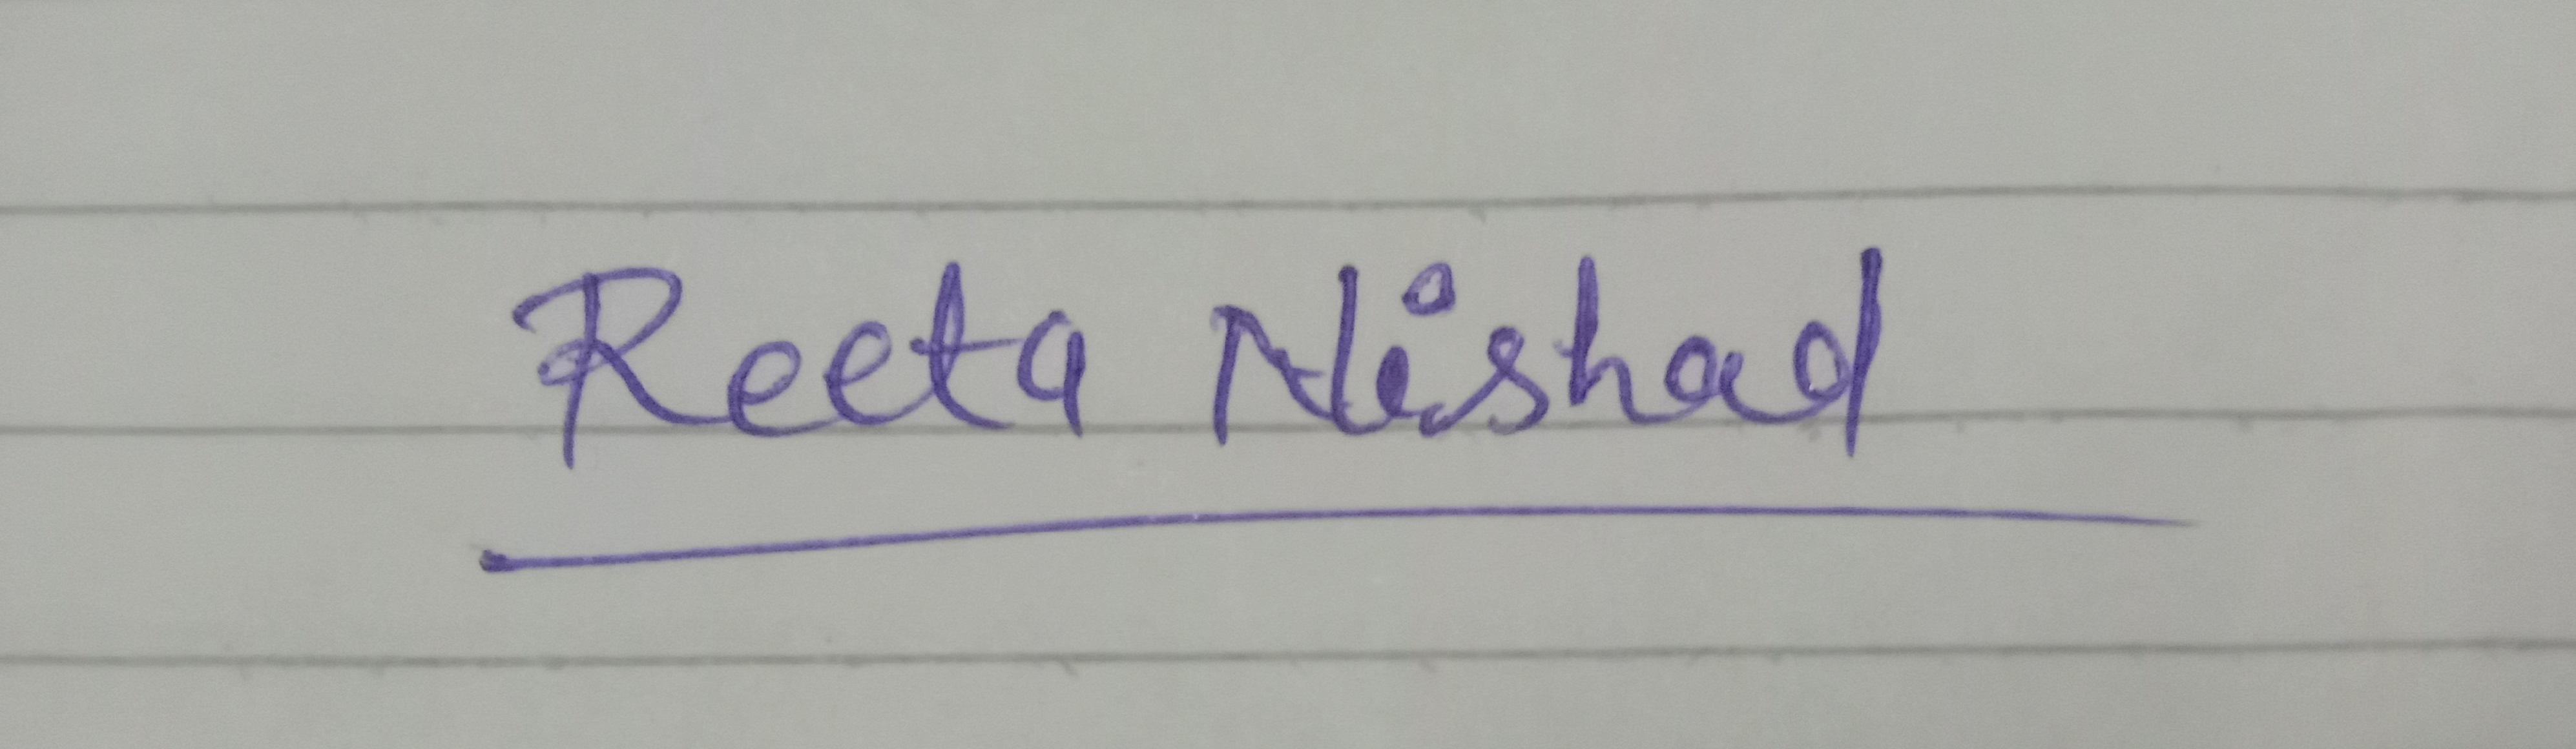 Reeta Nishad